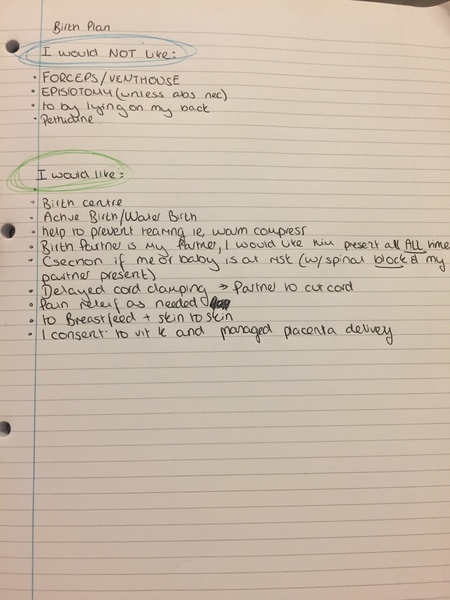 Birth Plan
I would NOT like:
• FORCEPS/VENTHOUSE
• EPISIOTOMY (unless abs nec)
• to by lying on my back
• Pethidine
I would like:
• Birth centre
• Active Birth/Water Birth
• help to prevent tearing ie, warm compress
• Birth Partner is my Partner, I would like him present all ALL time
• Csection if me or baby is at risk (w/spinal block & my
partner present)
• Delayed cord clamping → Partner to cut cord
• Pain relief as needed
• to Breastfeed + skin to skin
• I consent to vit k and managed placenta delivery